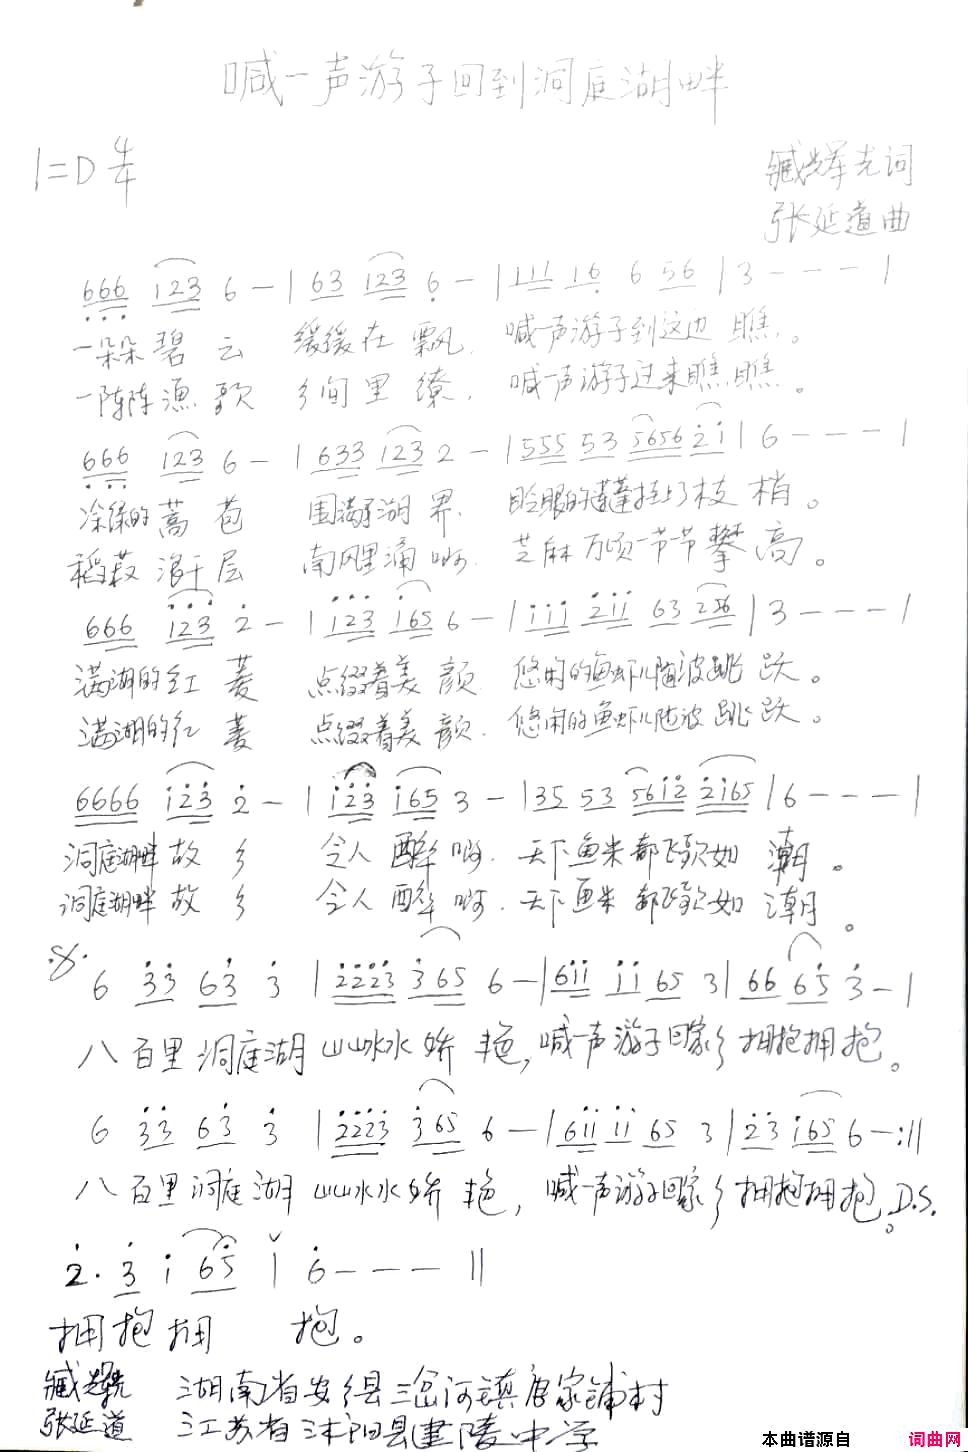 喊一声游子回到洞庭湖畔
1=D 4/4
臧辉光词
张延道曲
666 123 6 - | 63 123 6 - | 111 16 6 56 | 3 - - - |
一朵朵碧云 缓缓在飘. 喊一声游子到这边瞧。
一阵阵渔歌 乡间里缭. 喊一声游子过来瞧瞧。
666 123 6 - | 633 123 2 - | 555 53 5656 21 | 6 - - - |
涂绿的蒿苞 围满了湖界. 眨眼的莲蓬挂上了枝梢。
稻菽浪千层 南风里涌啊. 芝麻万顷一节节攀高。
666 123 2 - | 123 165 6 - | 111 211 63 256 | 3 - - - |
满湖的红菱 点缀着美颜. 悠闲的鱼虾儿随波跳跃。
满湖的红菱 点缀着美颜. 悠闲的鱼虾儿随波跳跃。
6666 123 2 - | 123 165 3 - | 35 53 5612 2165 | 6 - - - |
洞庭湖畔故乡 令人醉啊. 天下鱼米都飞歌如潮。
洞庭湖畔故乡 令人醉啊. 天下鱼米都飞歌如潮。
6 33 63 3 | 2223 365 6 - | 611 11 65 3 | 66 65 3 - |
八百里洞庭湖山山水水娇艳,喊一声游子回家乡拥抱拥抱。
6 33 63 3 | 2223 365 6 - | 611 11 65 3 | 23 165 6 - :||
八百里洞庭湖山山水水娇艳,喊一声游子回家乡拥抱拥抱。D.S.
2. 3 1 65 | 6 - - - ||
拥抱拥 抱。
臧辉光 湖南省安乡县三岔河镇唐家铺村
张延道 江苏省沭阳县建陵中学
本曲谱源自 词曲网